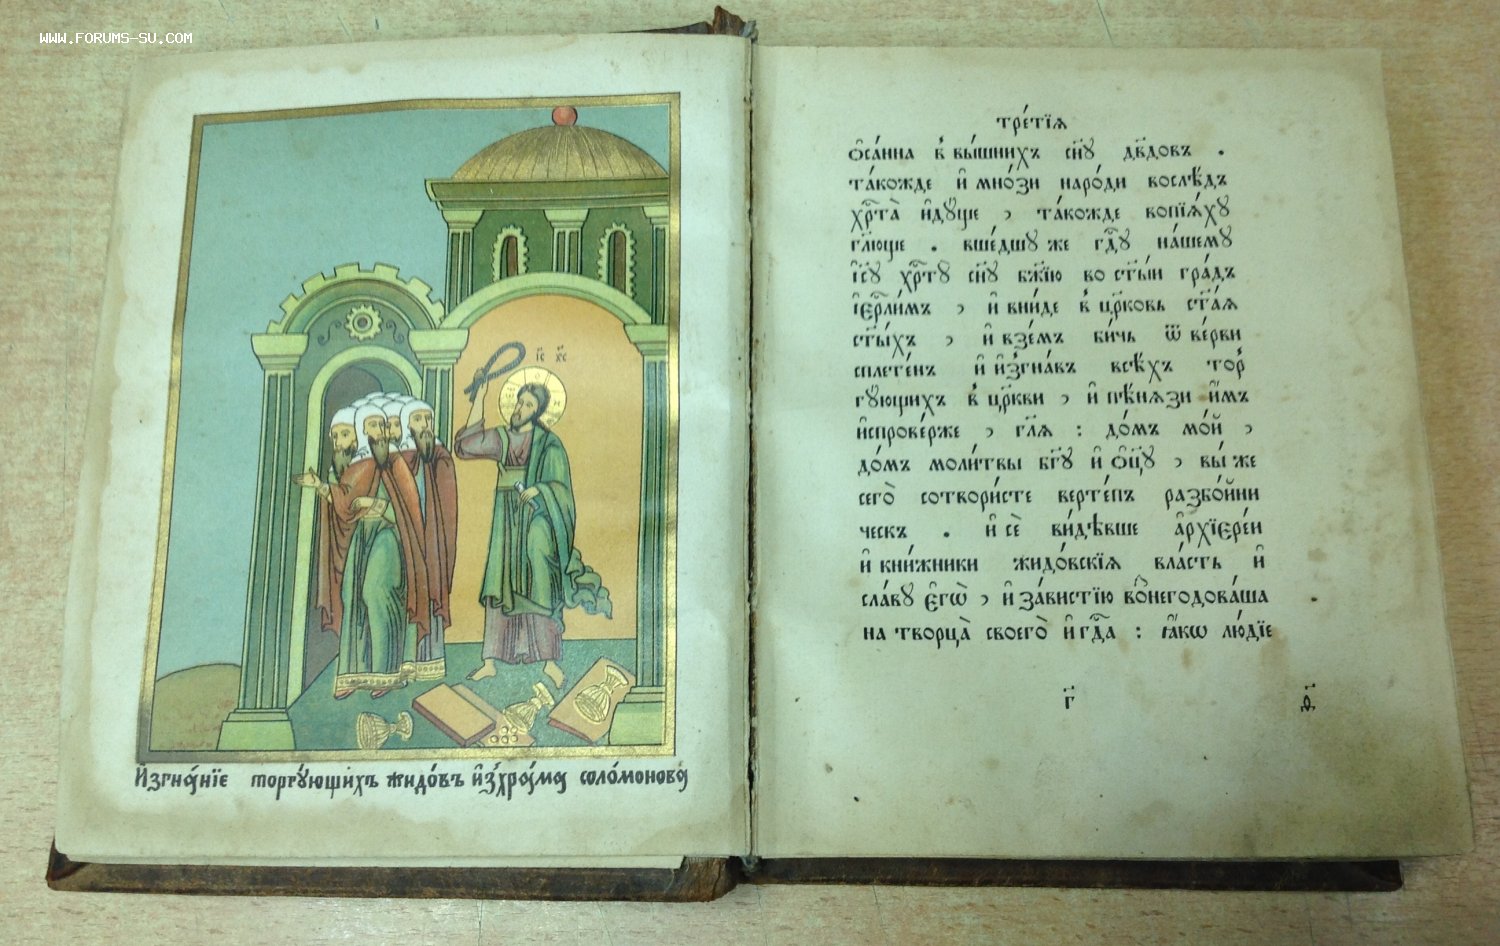 www.forums-su.com
І҃С Х҃С
И҆згна́нїе торгу́ющихъ жидо́въ и҆зхра́ма соло́монова
тре́тїѧ
ѻ҆са́нна в вы́шнихъ сн҃ꙋ дв҃довъ .
та́кожде и҆ мно́зи наро́ди вослѣ́дъ
хрⷭ҇та̀ и҆дꙋще , та́кожде вопїѧ́хꙋ
гл҃юще . вше́дшꙋ же гдⷭ҇ꙋ на́шемꙋ
і҆сꙋ҃ хрⷭ҇тꙋ сн҃ꙋ бж҃їю во ст҃ы́и гра́дъ
і҆єрⷭ҇ли́мъ , и҆ вни́де в цр҃ковь ст҃а́ѧ
ст҃ы́хъ , и҆ взе́мъ би́чь ѿ ве́рви
сплете́нъ и҆ и҆згна́въ всѣ́хъ тор
гꙋ́ющихъ в цр҃кви , и҆ пѣ́нѧзи и҆̀мъ
и҆спрове́рже , гл҃ѧ : до́мъ мо́й ,
до́мъ моли́твы бг҃ꙋ и҆ ѻ҆ц҃ꙋ , вы́ же
сего̀ сотвори́сте верте́пъ разбо́йни
ческъ . и҆ сѐ ви́дѣвше а҆рхїєре́и
и҆ кни́жники жидо́вскїѧ вла́сть и҆
сла́вꙋ є҆гѡ̀ , и҆ за́вистїю во̑негодова́ша
на творца̀ своего̀ и҆ гдⷭ҇а : ꙗ҆́кѡ лю́дїе
г҃ д҃